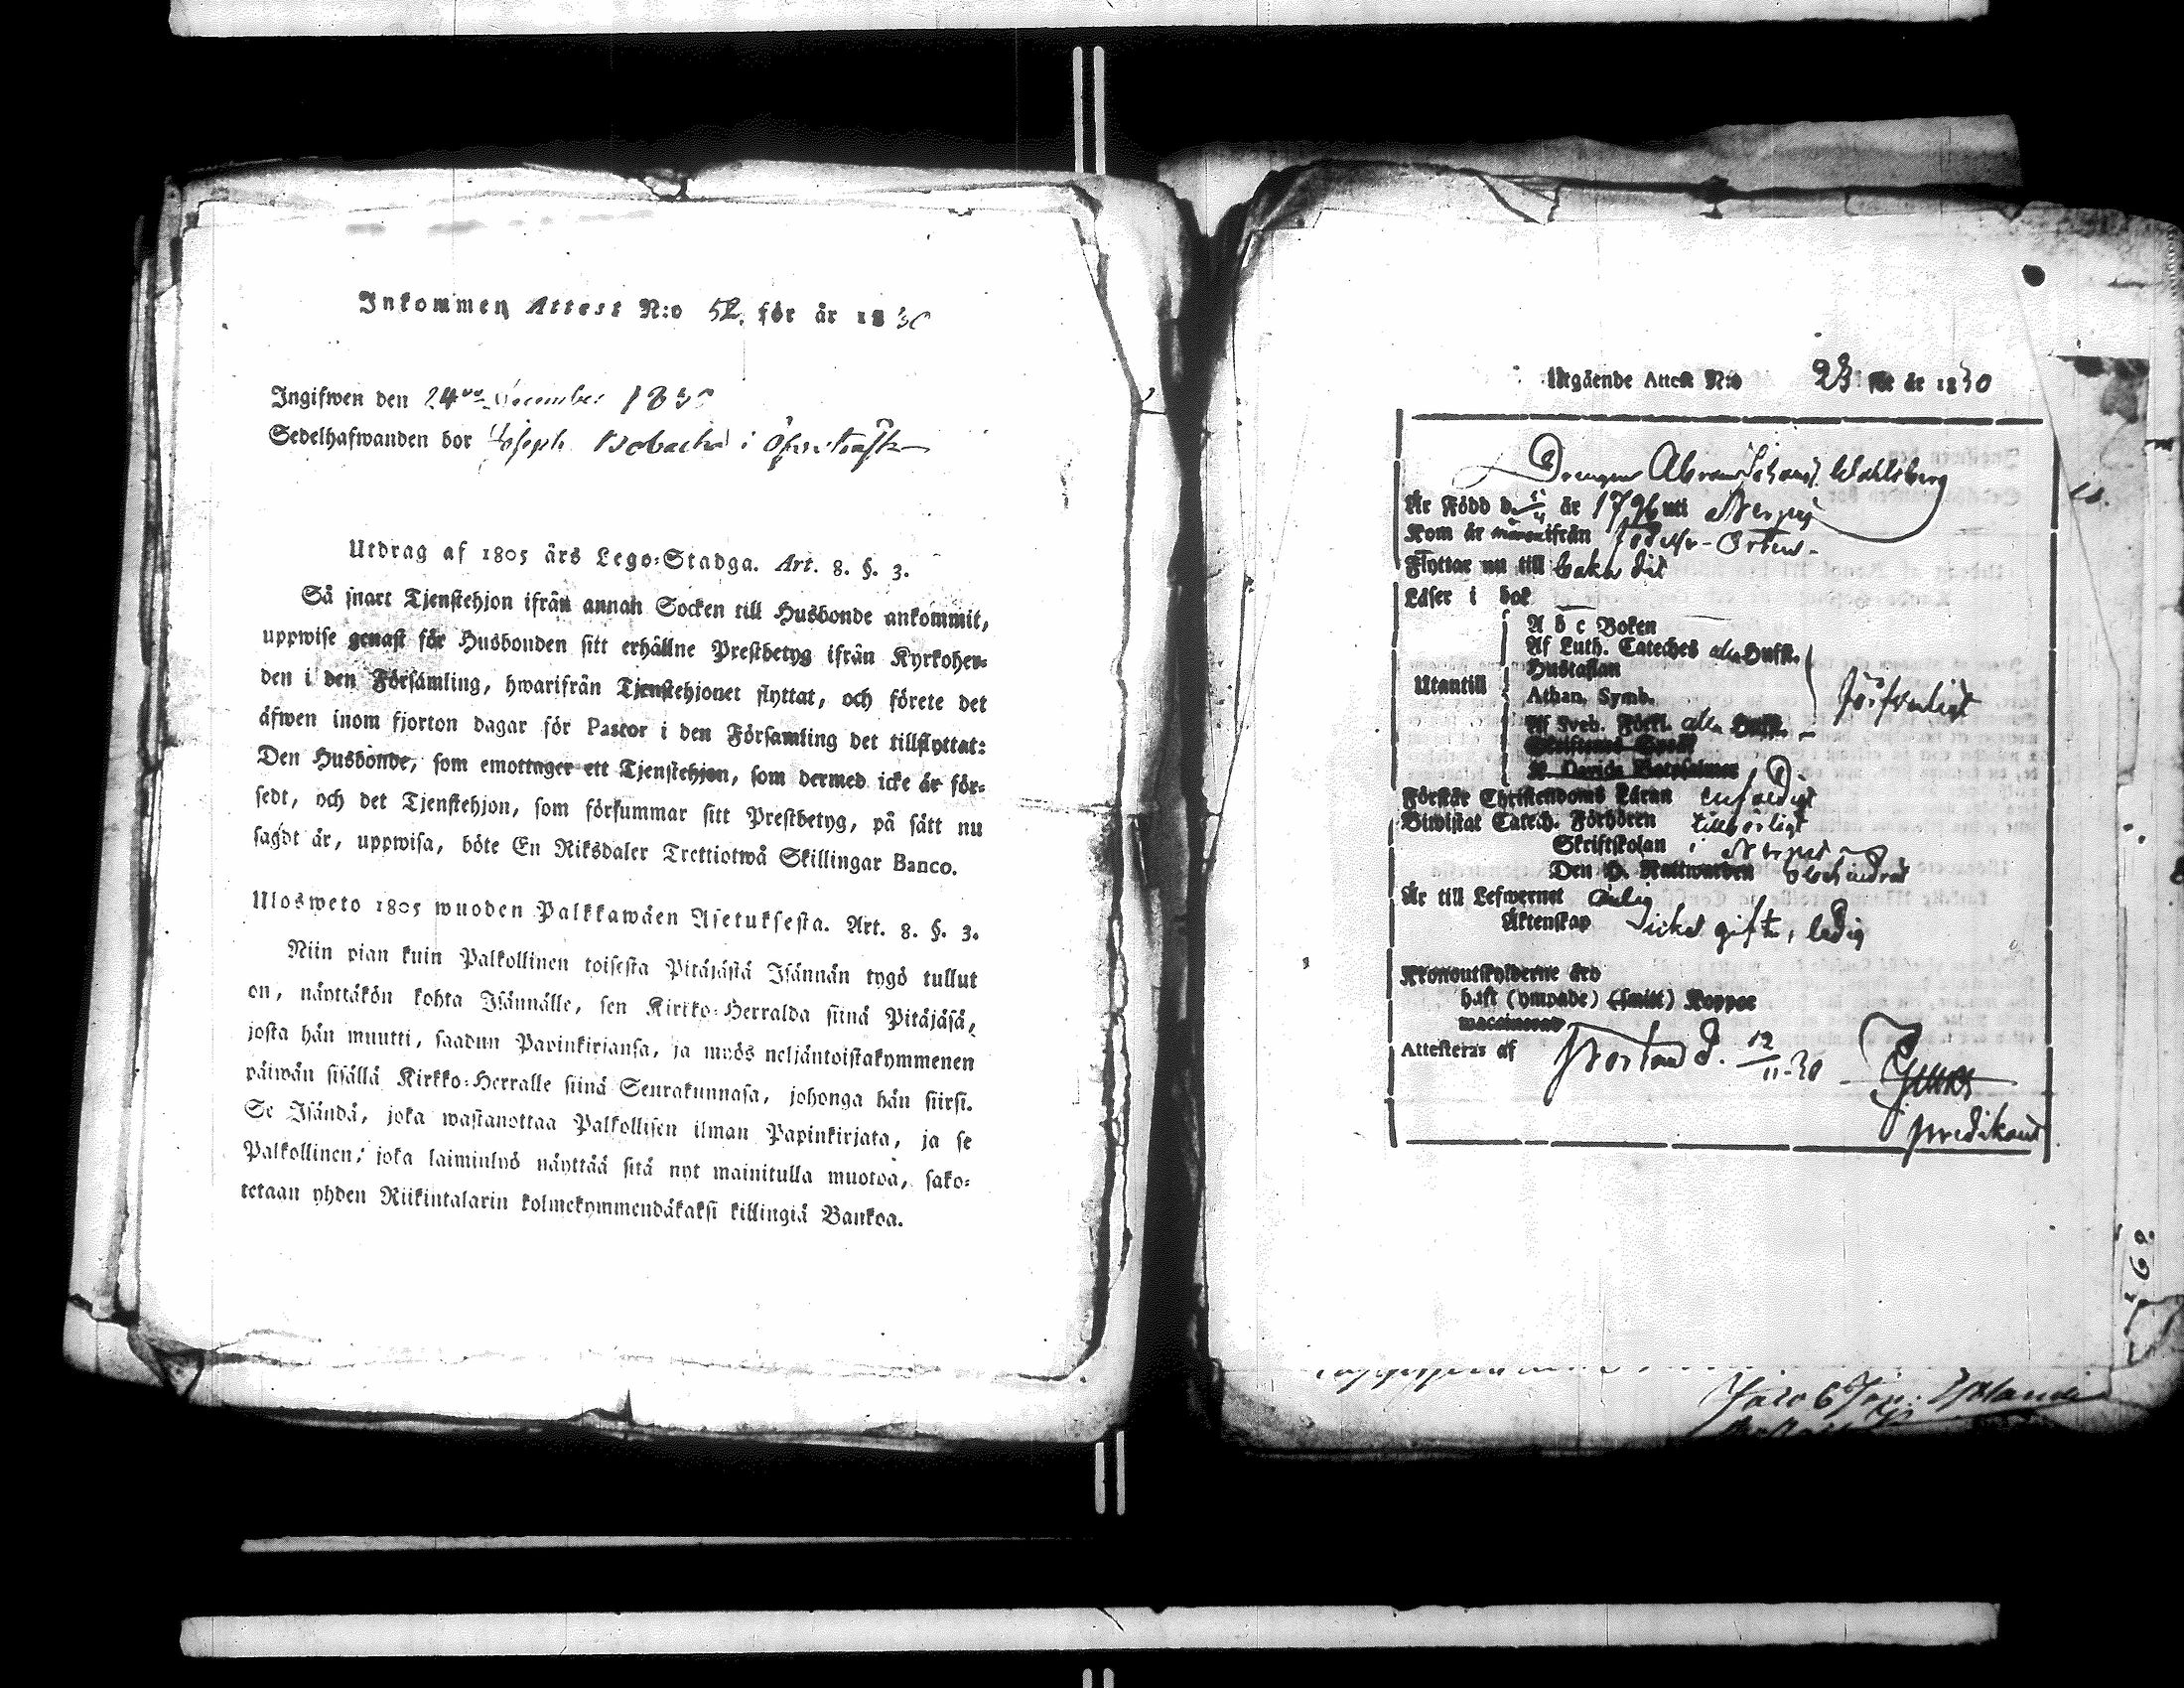 Inkommen Attest N:o 52. för år 1830
Ingifwen den 24 December 1830
Sedelhafwanden bor Joseph i Öfverträsk
Utdrag af 1805 års Lego-Stadga. Art. 8. §. 3.
Så snart Tjenstehjon ifrån annan Socken till Husbonde ankommit,
uppwise genast för Husbonden sitt erhållne Prestbetyg ifrån Kyrkoher-
den i den Församling, hwarifrån Tjenstehjonet flyttat, och förete det
äfwen inom fjorton dagar för Pastor i den Församling det tillflyttat:
Den Husbonde, som emottager ett Tjenstehjon, som dermed icke är för-
sedt, och det Tjenstehjon, som försummar sitt Prestbetyg, på sätt nu
sagdt är, uppwisa, böte En Riksdaler Trettiotwå Skillingar Banco.
Ulosweto 1805 wuoden Palkkawäen Asetuksesta. Art. 8. §. 3.
Niin pian kuin Palkollinen toisesta Pitäjästä Isännän tygö tullut
on, näyttäkön kohta Isännälle, sen Kirkko-Herralda siinä Pitäjäsä,
josta hän muutti, saadun Papinkirjansa, ja myös neljäntoistakymmenen
päiwän sisällä Kirkko-Herralle siinä Seurakunnasa, johonga hän siirsi.
Se Isändä, joka wastanottaa Palkollisen ilman Papinkirjata, ja se
Palkollinen, joka laiminlyö näyttää sitä nyt mainitulla muotoa, sako-
tetaan yhden Riikintalarin kolmekymmendäkaksi killingiä Bankoa.
Utgående Attest N:o 23 för år 1830
Drengen Abram Johans. Wahlsberg
Är Född d. år 1796 uti Nerpes
Kom år ifrån Födelse-Orten
Flyttar nu till baka dit
Läser i bok
A b c Boken
Af Luth. Cateches alla Hufst.
Hustaflan
Utantill
Athan. Symb.
Af Sveb. Förkl. alla Hufst.
försvarligt
Skriftenes Språk
K. Davids Botpsalmer
Förstår Christendoms Läran enfaldigt
Biwistat Catech. Förhören tillbörligt
Skriftskolan i Nerpes
Den H. Nattwarden obehindrad
Är till Lefwernet ärlig
Äktenskap icke gift, ledig
Kronoutskylderne äro
haft (ympade) (smitt) Koppor
vaccinerad
Attesteras af d. 12/11 30
predikant